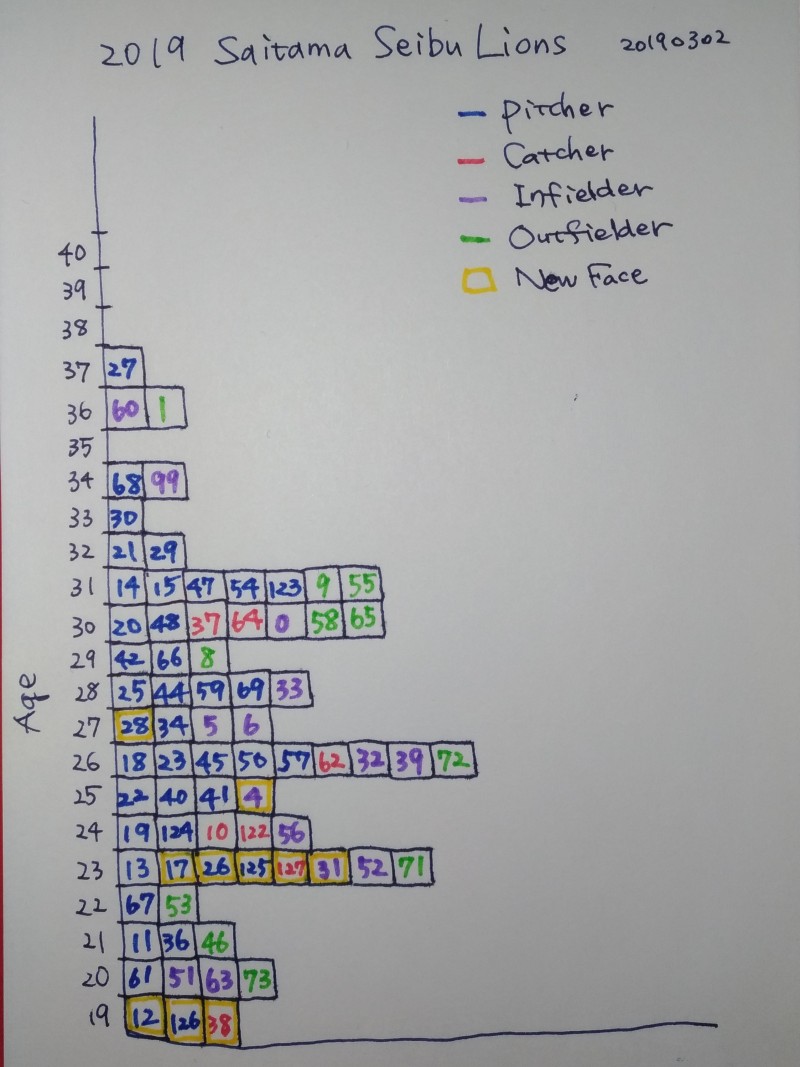 2019 Saitama Seibu Lions 20190302
Pitcher
Catcher
Infielder
Outfielder
New Face
40
39
38
37 27
36 60 1
35
34 68 99
33 30
32 21 29
31 14 15 47 54 123 9 55
30 20 48 37 64 0 58 65
29 42 66 8
28 25 44 59 69 33
27 28 34 5 6
26 18 23 45 50 57 62 32 39 72
25 22 40 41 4
24 19 124 10 122 56
23 13 17 26 125 127 31 52 71
22 67 53
21 11 36 46
20 61 51 63 73
19 12 126 38
Age